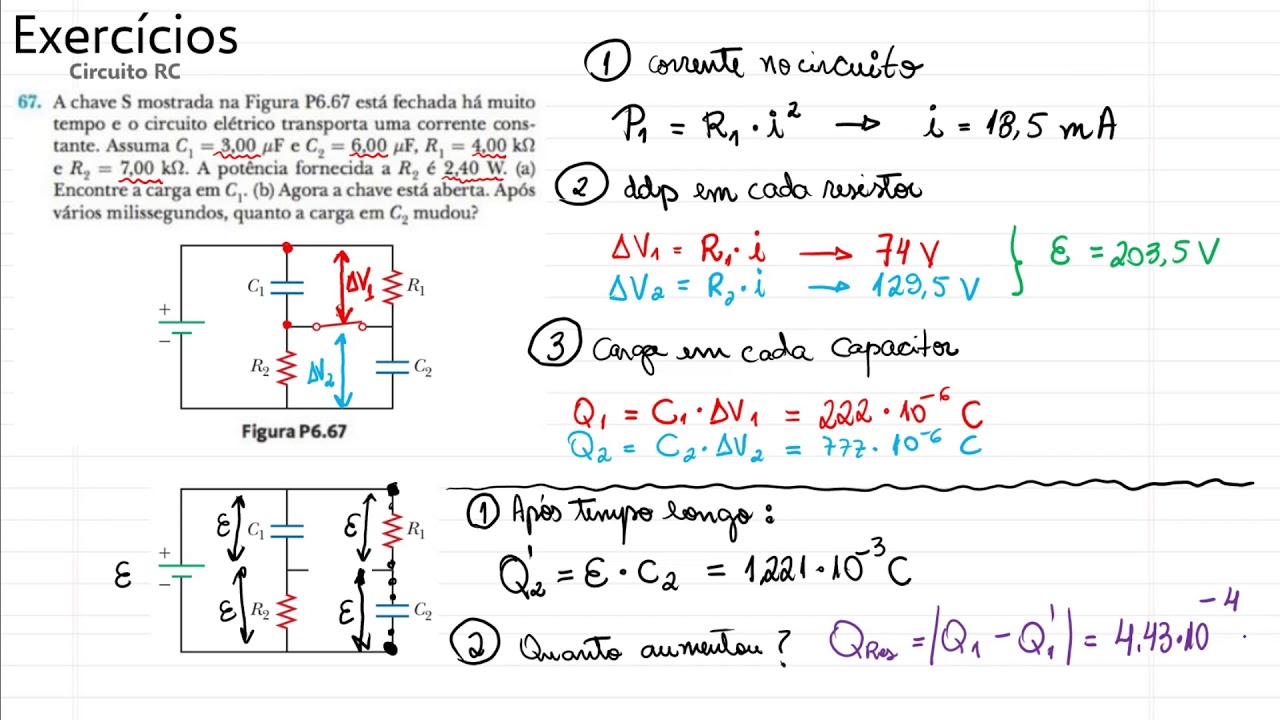 Exercícios
Circuito RC
67. A chave S mostrada na Figura P6.67 está fechada há muito
tempo e o circuito elétrico transporta uma corrente cons-
tante. Assuma C₁ = 3,00 μF e C₂ = 6,00 μF, R₁ = 4,00 kΩ
e R₂ = 7,00 kΩ. A potência fornecida a R₂ é 2,40 W. (a)
Encontre a carga em C₁. (b) Agora a chave está aberta. Após
vários milissegundos, quanto a carga em C₂ mudou?
+
−
C₁
ΔV₁
R₁
R₂
ΔV₂
C₂
Figura P6.67
① corrente no circuito
P₁ = R₁ · i² → i = 18,5 mA
② ddp em cada resistor
ΔV₁ = R₁ · i → 74 V
ΔV₂ = R₂ · i → 129,5 V
} ε = 203,5 V
③ Carga em cada capacitor
Q₁ = C₁ · ΔV₁ = 222 · 10⁻⁶ C
Q₂ = C₂ · ΔV₂ = 777 · 10⁻⁶ C
ε
+
−
ε C₁
ε R₁
ε R₂
ε C₂
① Após tempo longo:
Q₂' = ε · C₂ = 1,221 · 10⁻³ C
② Quanto aumentou? Q_Res = |Q₁ − Q₁'| = 4,43 · 10⁻⁴ ·